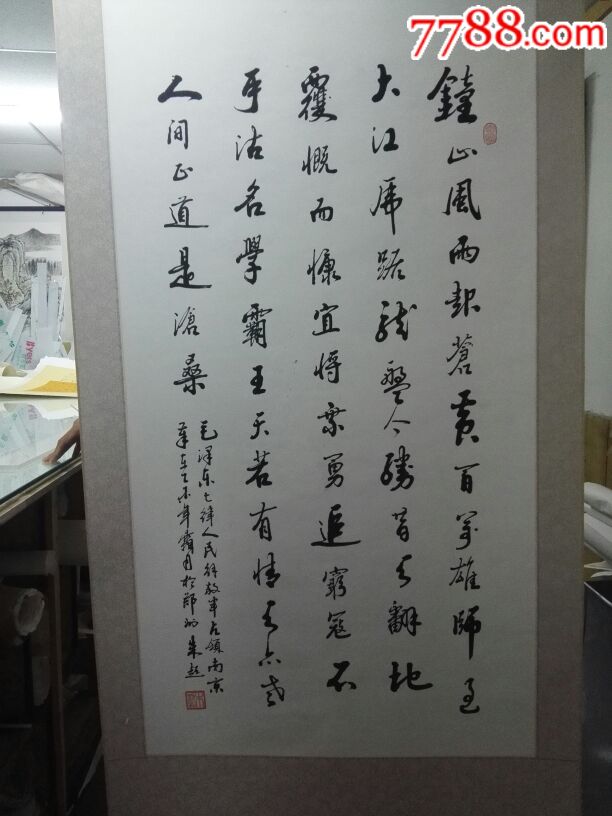 7788.com
鐘山風雨起蒼黃百萬雄師過
大江虎踞龍盤今勝昔天翻地
覆慨而慷宜將乘勇追窮寇不
可沽名學霸王天若有情天亦老
人間正道是滄桑
毛澤東七律人民解放軍占領南京
歲在乙未年霜月於鄭州朱超